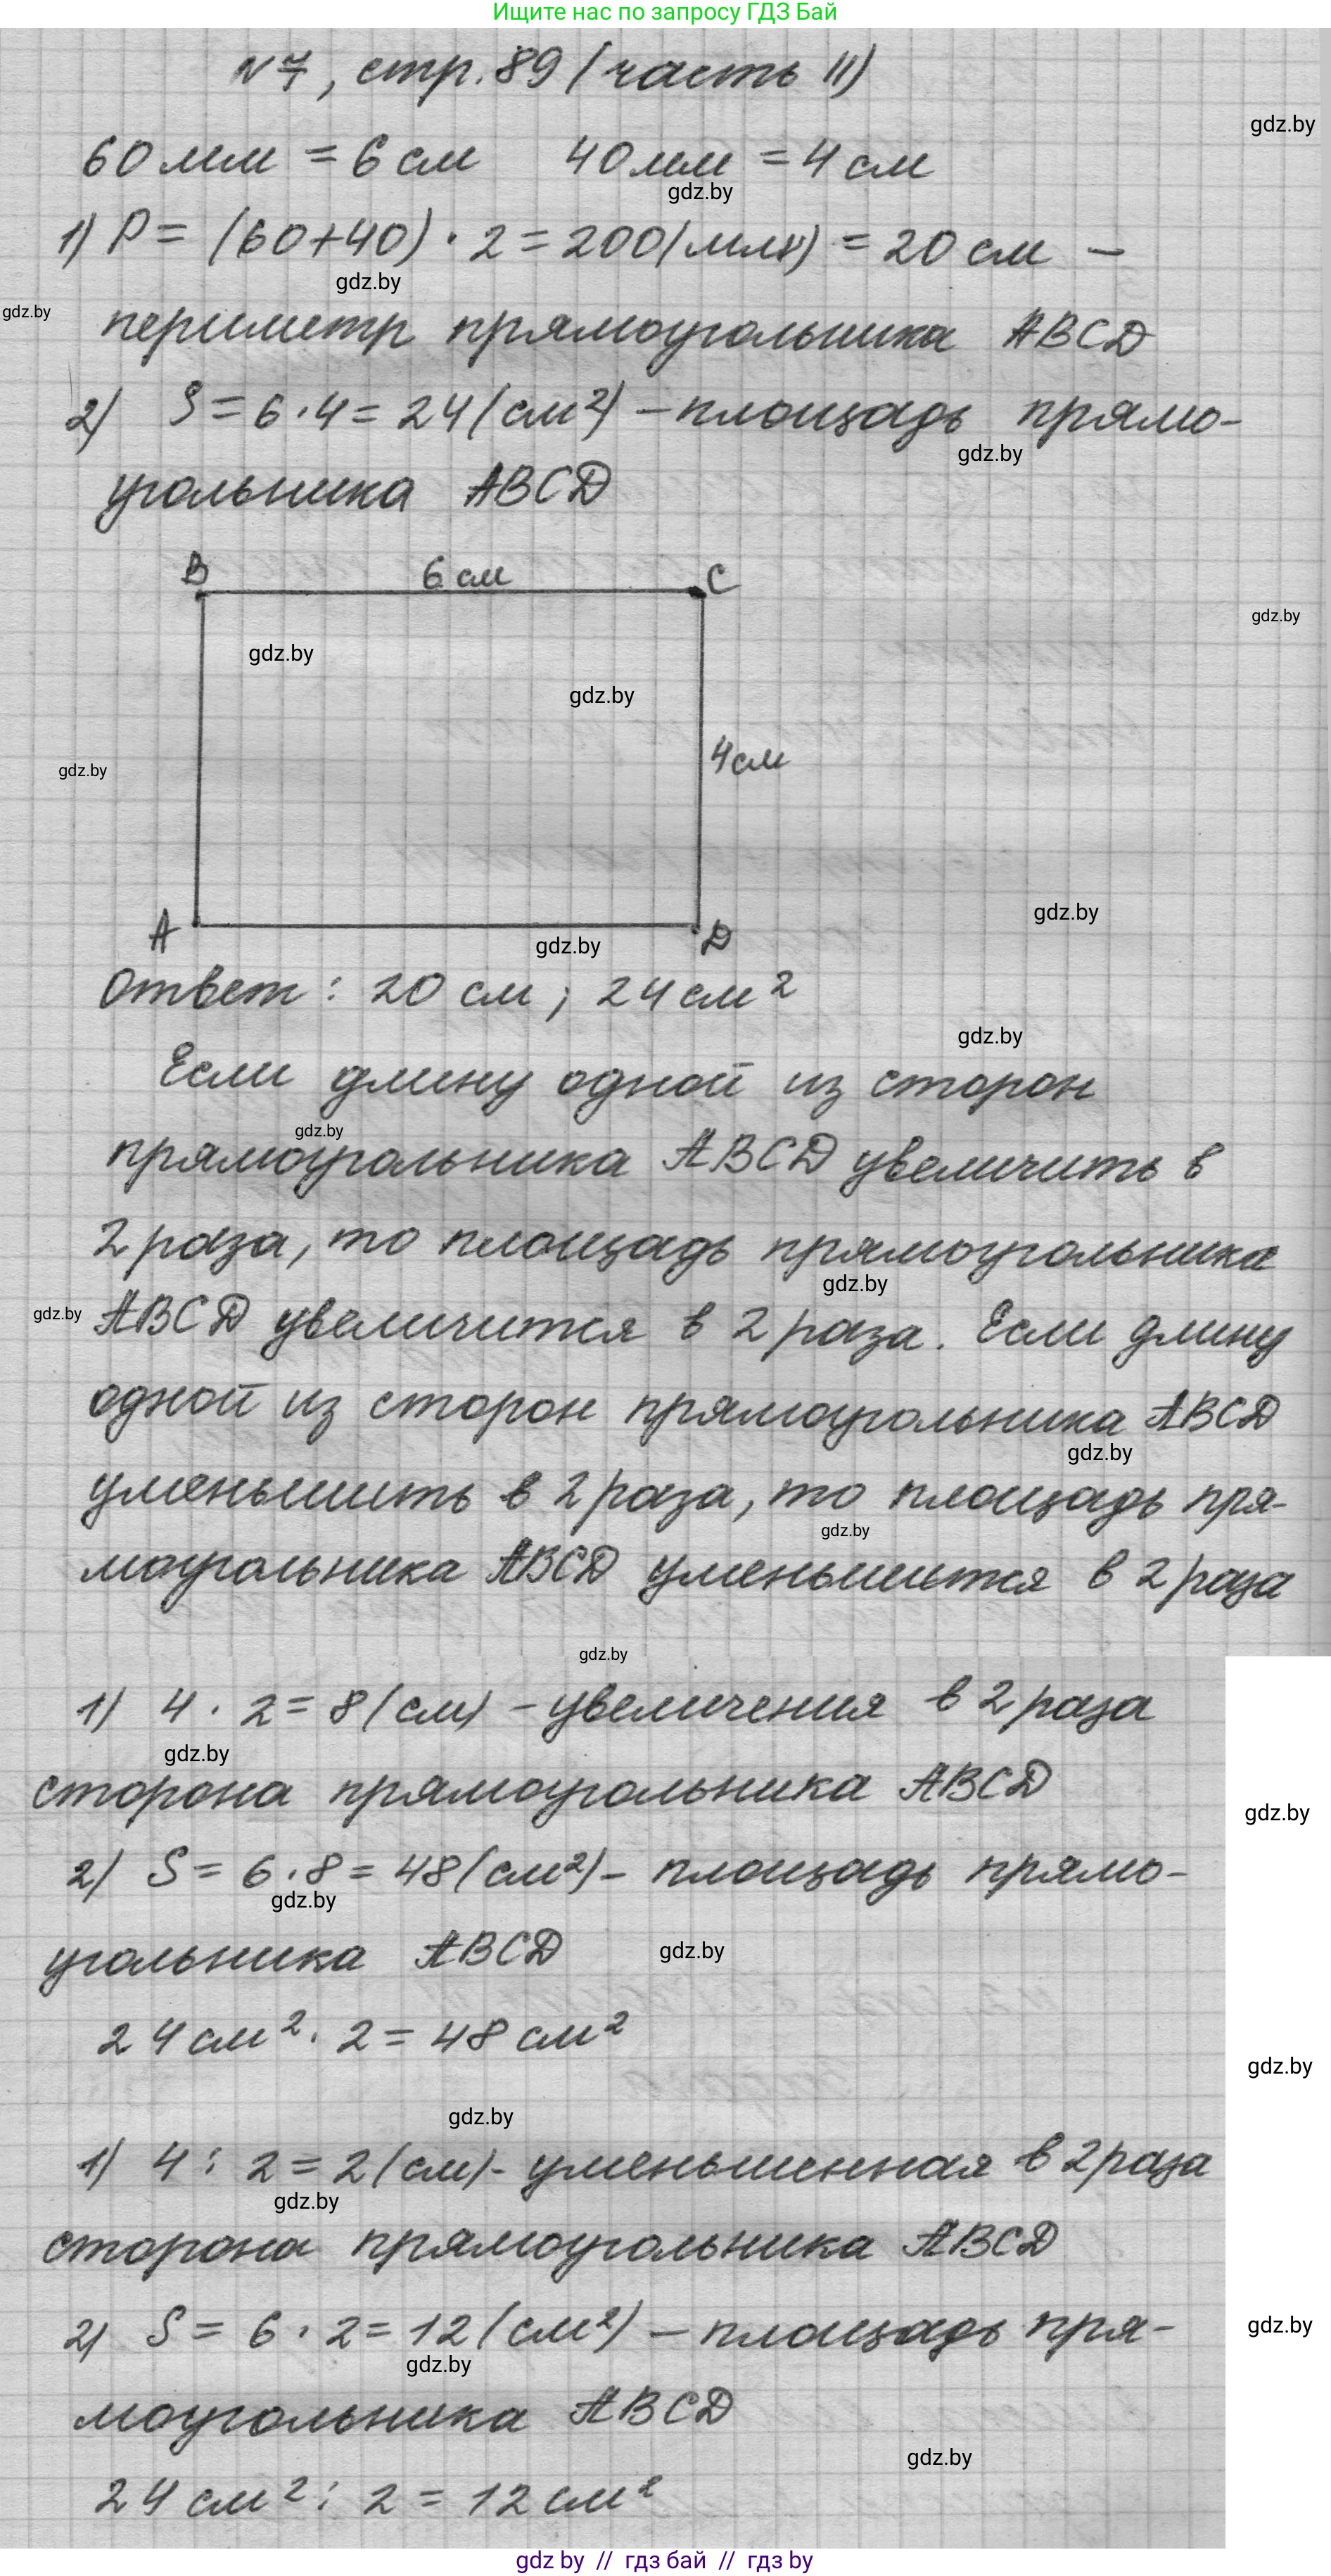 Ищите нас по запросу ГДЗ Бай
№7, стр. 89 (часть II)
gdz.by
60 мм = 6 см 40 мм = 4 см
gdz.by
1) P = (60+40) · 2 = 200(мм) = 20 см –
gdz.by
gdz.by
периметр прямоугольника ABCD
2) S = 6 · 4 = 24 (см²) – площадь прямо-
gdz.by
угольника ABCD
B 6 см C
gdz.by
gdz.by
gdz.by
4 см
gdz.by
gdz.by
A D
gdz.by
Ответ: 20 см; 24 см²
gdz.by
Если длину одной из сторон
gdz.by
прямоугольника ABCD увеличить в
2 раза, то площадь прямоугольника
gdz.by
gdz.by
ABCD увеличится в 2 раза. Если длину
одной из сторон прямоугольника ABCD
gdz.by
уменьшить в 2 раза, то площадь пря-
gdz.by
моугольника ABCD уменьшится в 2 раза
gdz.by
1) 4 · 2 = 8 (см) – увеличения в 2 раза
gdz.by
сторона прямоугольника ABCD
gdz.by
2) S = 6 · 8 = 48 (см²) – площадь прямо-
gdz.by
угольника ABCD
gdz.by
24 см² · 2 = 48 см²
gdz.by
gdz.by
1) 4 : 2 = 2 (см) - уменьшенная в 2 раза
gdz.by
сторона прямоугольника ABCD
2) S = 6 · 2 = 12 (см²) – площадь пря-
gdz.by
gdz.by
моугольника ABCD
gdz.by
24 см² : 2 = 12 см²
gdz by // гдз бай // гдз by